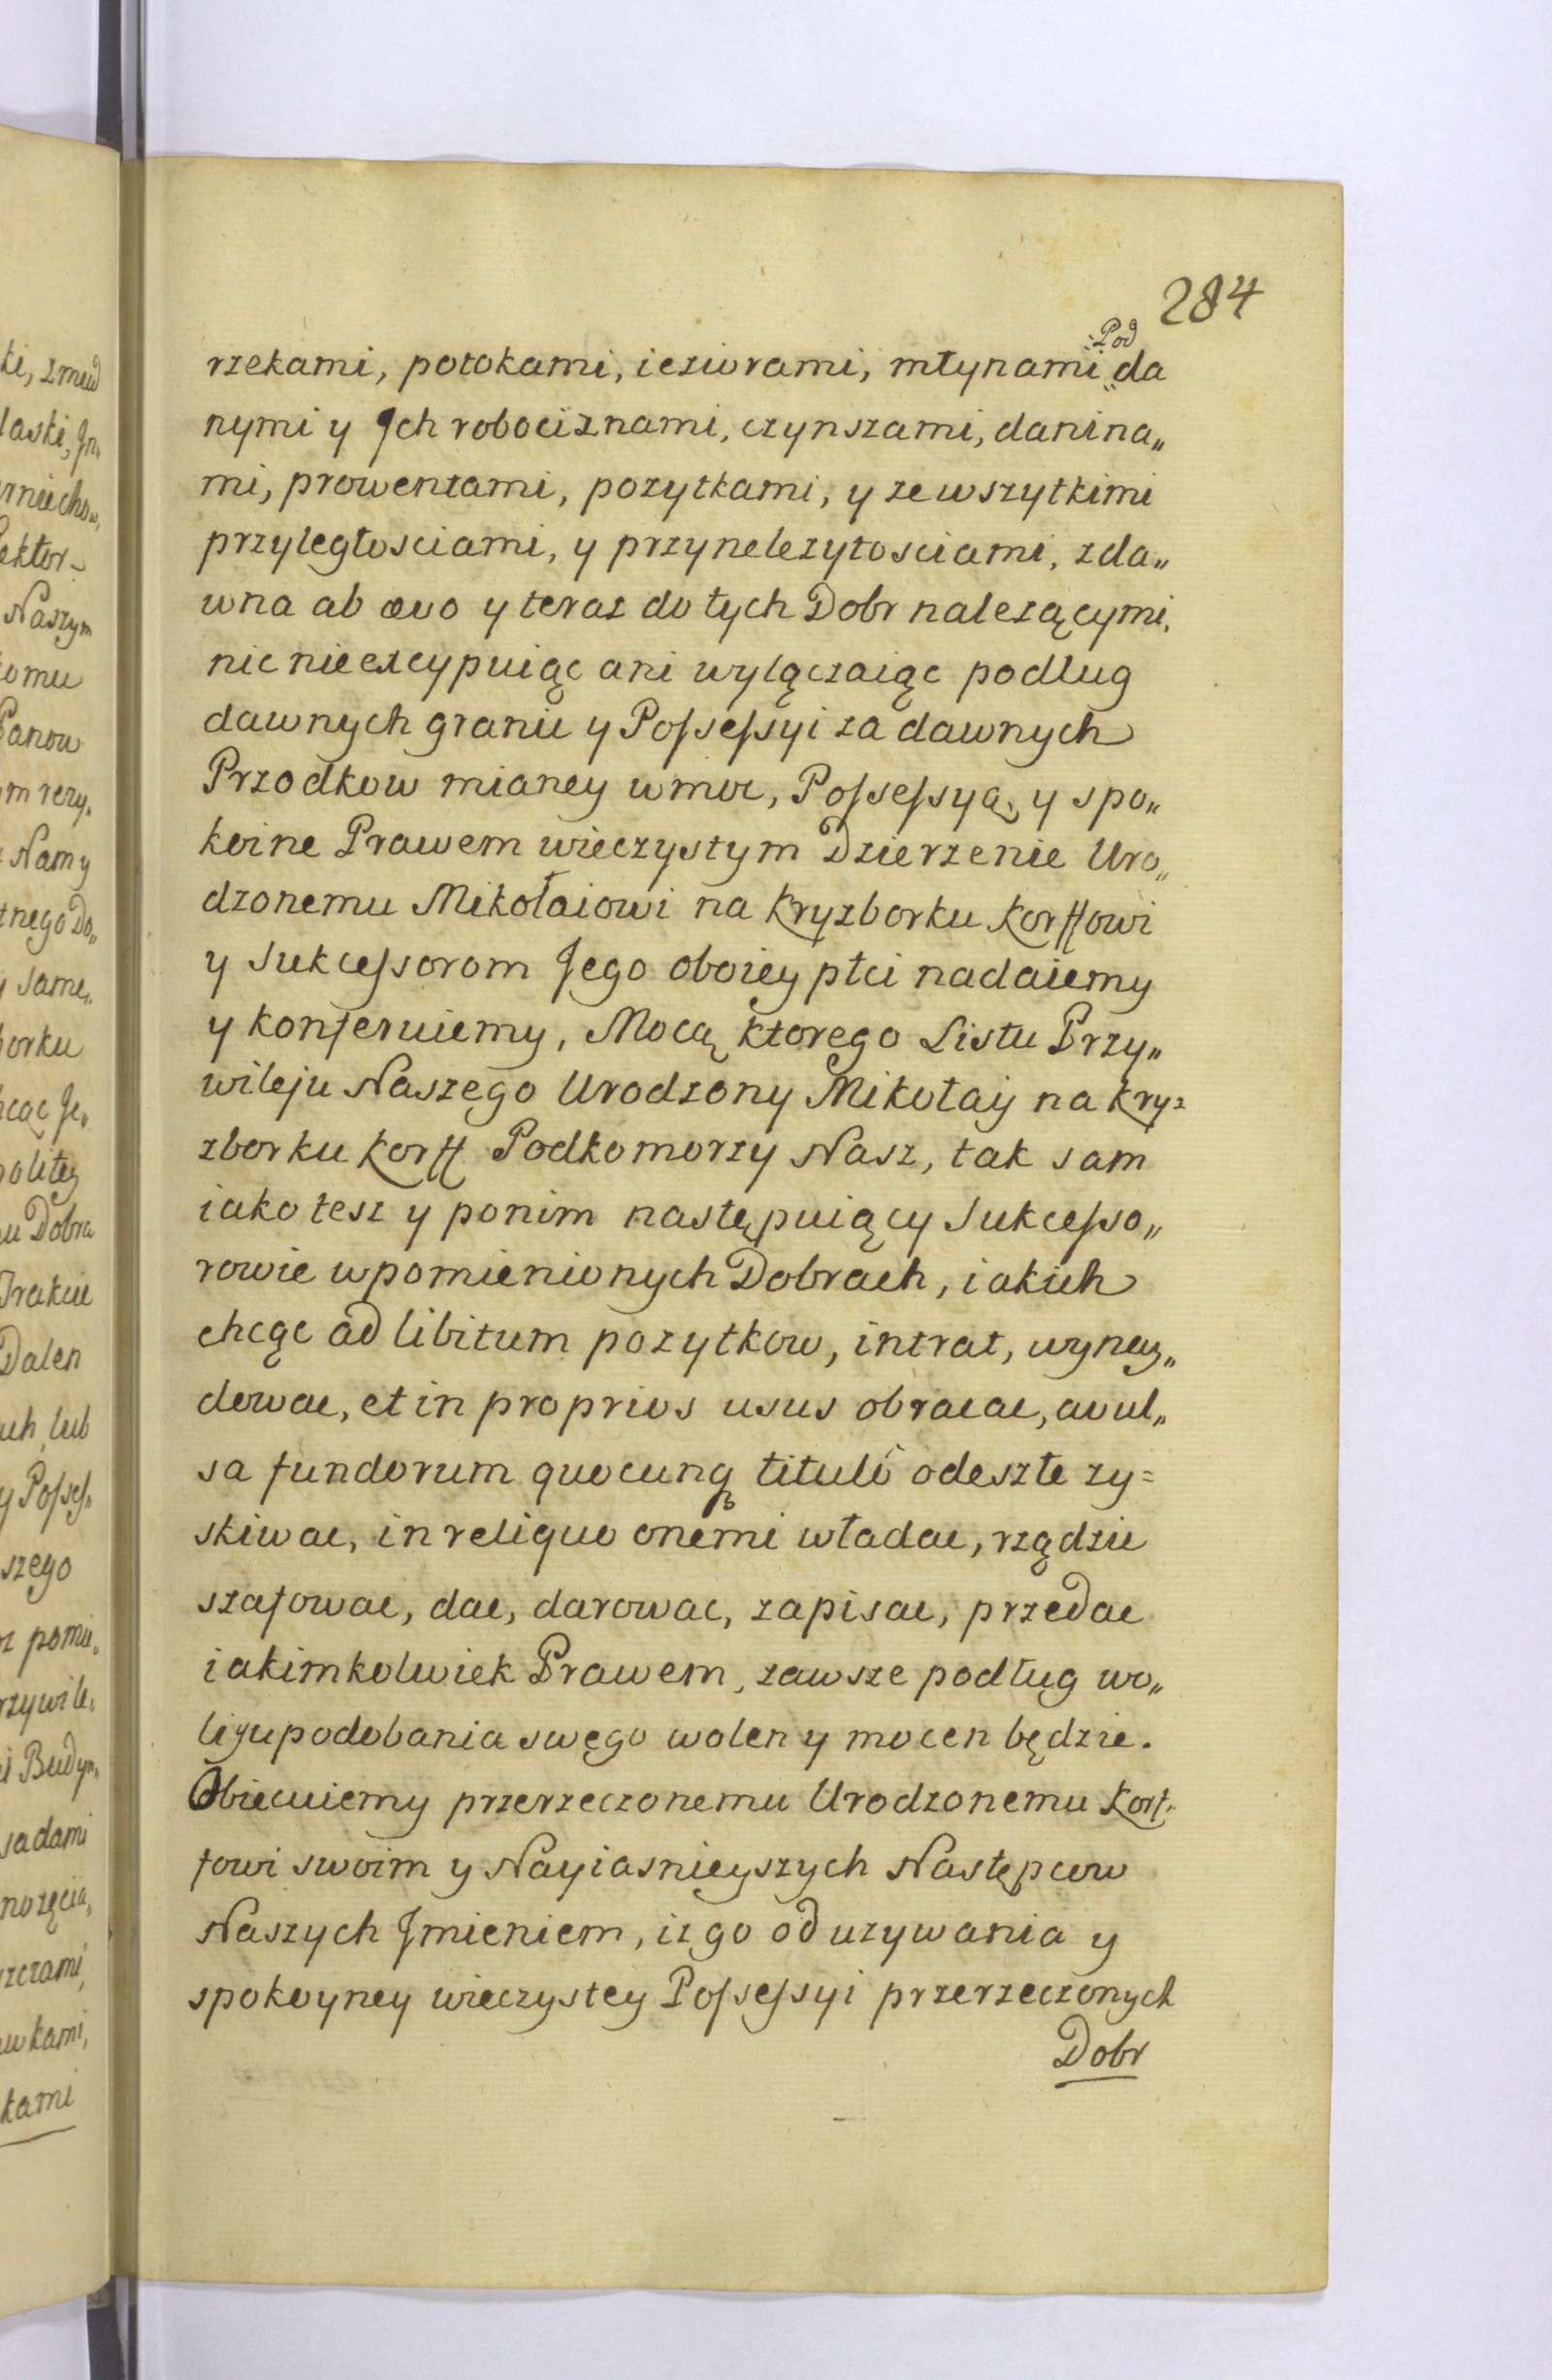 284
rzekami, potokami, ieziorami, młynami Pod da
nymi y Jch robociznami, czynszami, danina„
mi, prowentami, pozytkami, y ze wszytkimi
przyległosciami, y przynelezytosciami, zda„
wna ab ævo y teraz do tych Dobr nalezącymi,
nic nie excypuiąc ani wyłączaiąc podlug
dawnych granic y Possessyi za dawnych
Przodkow mianey w moc, Possessyą, y spo„
koine Prawem wieczystym Dzierzenie Uro„
dzonemu Mikołaiowi na Kryzborku Korffowi
y Sukcessorom Jego oboiey płci nadaiemy
y konferuiemy, Mocą ktorego Listu Przy„
wileju Naszego Urodzony Mikołay na Kry=
zborku Korff Podkomorzy Nasz, tak sam
iako tesz y ponim następuiący Sukcesso„
rowie wpomienionych Dobrach, iakich
chcąc ad libitum pozytkow, intrat, wynay„
dować, et in proprios usus obracac, avul„
sa fundorum quocunq tituló odeszłe zy=
skiwac, in reliquo onemi władac, rządzic
szafowac, dac, darowac, zapisac, przedac
iakimkolwiek Prawem, zawsze podług wo„
li y upodobania swęgo wolen y mocen będzie.
Obiecuiemy przerzeczonemu Urodzonemu Korf„
fowi swoim y Nayiasnieyszych Następcow
Naszych Jmieniem, iz go od uzywania y
spokoyney wieczystey Possessyi przerzeczonych
Dobr
ki, zmud
laski, Jn„
erniechow„
ektor„
Naszym
tomu
Panow
m rezy„
Namy
tnego Do„
y same„
borku
cąc Je„
politey
u Dobra
Trakcie
Dalen
ch, lub
y Posses„
szego
z pomie„
rzywile„
i Budyn„
sadami
nozęcia,
szczami,
wkami,
kami